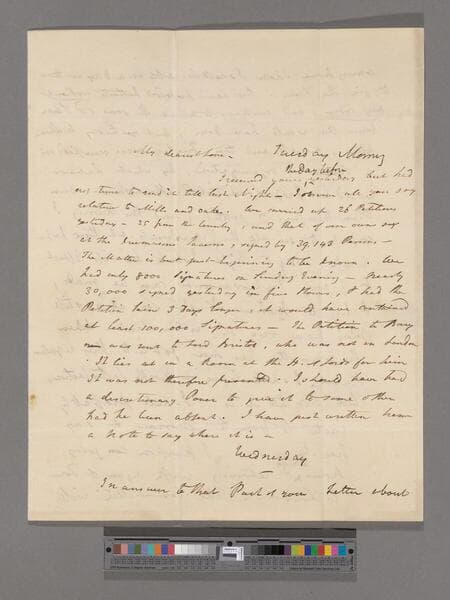 My dearest Love - Tuesday Morng
the Day before
I received yours yesterday but had
no time to read it till last Night - I observe all you say
relative to Mills and Oake. We carried up 26 Petitions
yesterday - 25 from the Country, and that of our own
at the Freemasons Tavern, signed by 39,143 Persons -
The Matter is but just beginning to be known. We
had only 8000 signatures on Sunday Evening - nearly
30,000 signed yesterday in five Hours, & had the
Petition lain 3 Days longer, it would have contained
at least 100,000 Signatures - The Petition to
was sent to Lord Bristol, who was not in London
. It lies at in a Room at the H. of Lords for him
It was not therefore presented. I should have had
a discretionary Power to give it to some other
had he been absent. I have just written
a Note to say where it is -
Wednesday
In answer to that Part of your Letter about